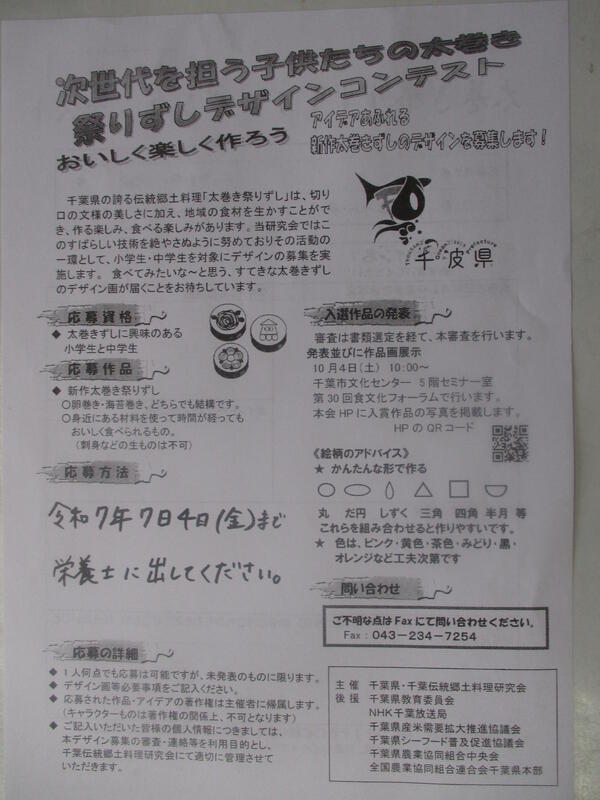 次世代を担う子供たちの太巻き
祭りずしデザインコンテスト
おいしく楽しく作ろう
アイデアあふれる
新作太巻きずしのデザインを募集します!
千葉県の誇る伝統郷土料理「太巻き祭りずし」は、切り
口の文様の美しさに加え、地域の食材を生かすことがで
き、作る楽しみ、食べる楽しみがあります。当研究会ではこ
のすばらしい技術を絶やさぬように努めておりその活動の
一環として、小学生・中学生を対象にデザインの募集を実
施します。 食べてみたいな~と思う、すてきな太巻きずし
のデザイン画が届くことをお待ちしています。
千波県
応募資格
◆ 太巻きずしに興味のある
小学生と中学生
応募作品
◆ 新作太巻き祭りずし
○卵巻き・海苔巻き、どちらでも結構です。
○身近にある材料を使って時間が経っても
おいしく食べられるもの。
(刺身などの生ものは不可)
応募方法
令和7年7月4日(金)まで
栄養士に出してください。
入選作品の発表
審査は書類選定を経て、本審査を行います。
発表並びに作品画展示
10月4日(土) 10:00~
千葉市文化センター 5階セミナー室
第30回食文化フォーラムで行います。
本会HPに入賞作品の写真を掲載します。
HPのQRコード
《絵柄のアドバイス》
★ かんたんな形で作る
丸 だ円 しずく 三角 四角 半月 等
これらを組み合わせると作りやすいです。
★ 色は、ピンク・黄色・茶色・みどり・黒・
オレンジなど工夫次第です
問い合わせ
ご不明な点はFaxにて問い合わせください。
Fax:043-234-7254
応募の詳細
◆ 1人何点でも応募は可能ですが、未発表のものに限ります。
◆ デザイン画等必要事項をご記入ください。
◆ 応募された作品・アイデアの著作権は主催者に帰属します。
(キャラクターものは著作権の関係上、不可となります)
◆ ご記入いただいた皆様の個人情報につきましては、
本デザイン募集の審査・連絡等を利用目的とし、
千葉伝統郷土料理研究会にて適切に管理させて
いただきます。
主催 千葉県・千葉伝統郷土料理研究会
後援 千葉県教育委員会
NHK千葉放送局
千葉県産米需要拡大推進協議会
千葉県シーフード普及促進協議会
千葉県農業協同組合中央会
全国農業協同組合連合会千葉県本部